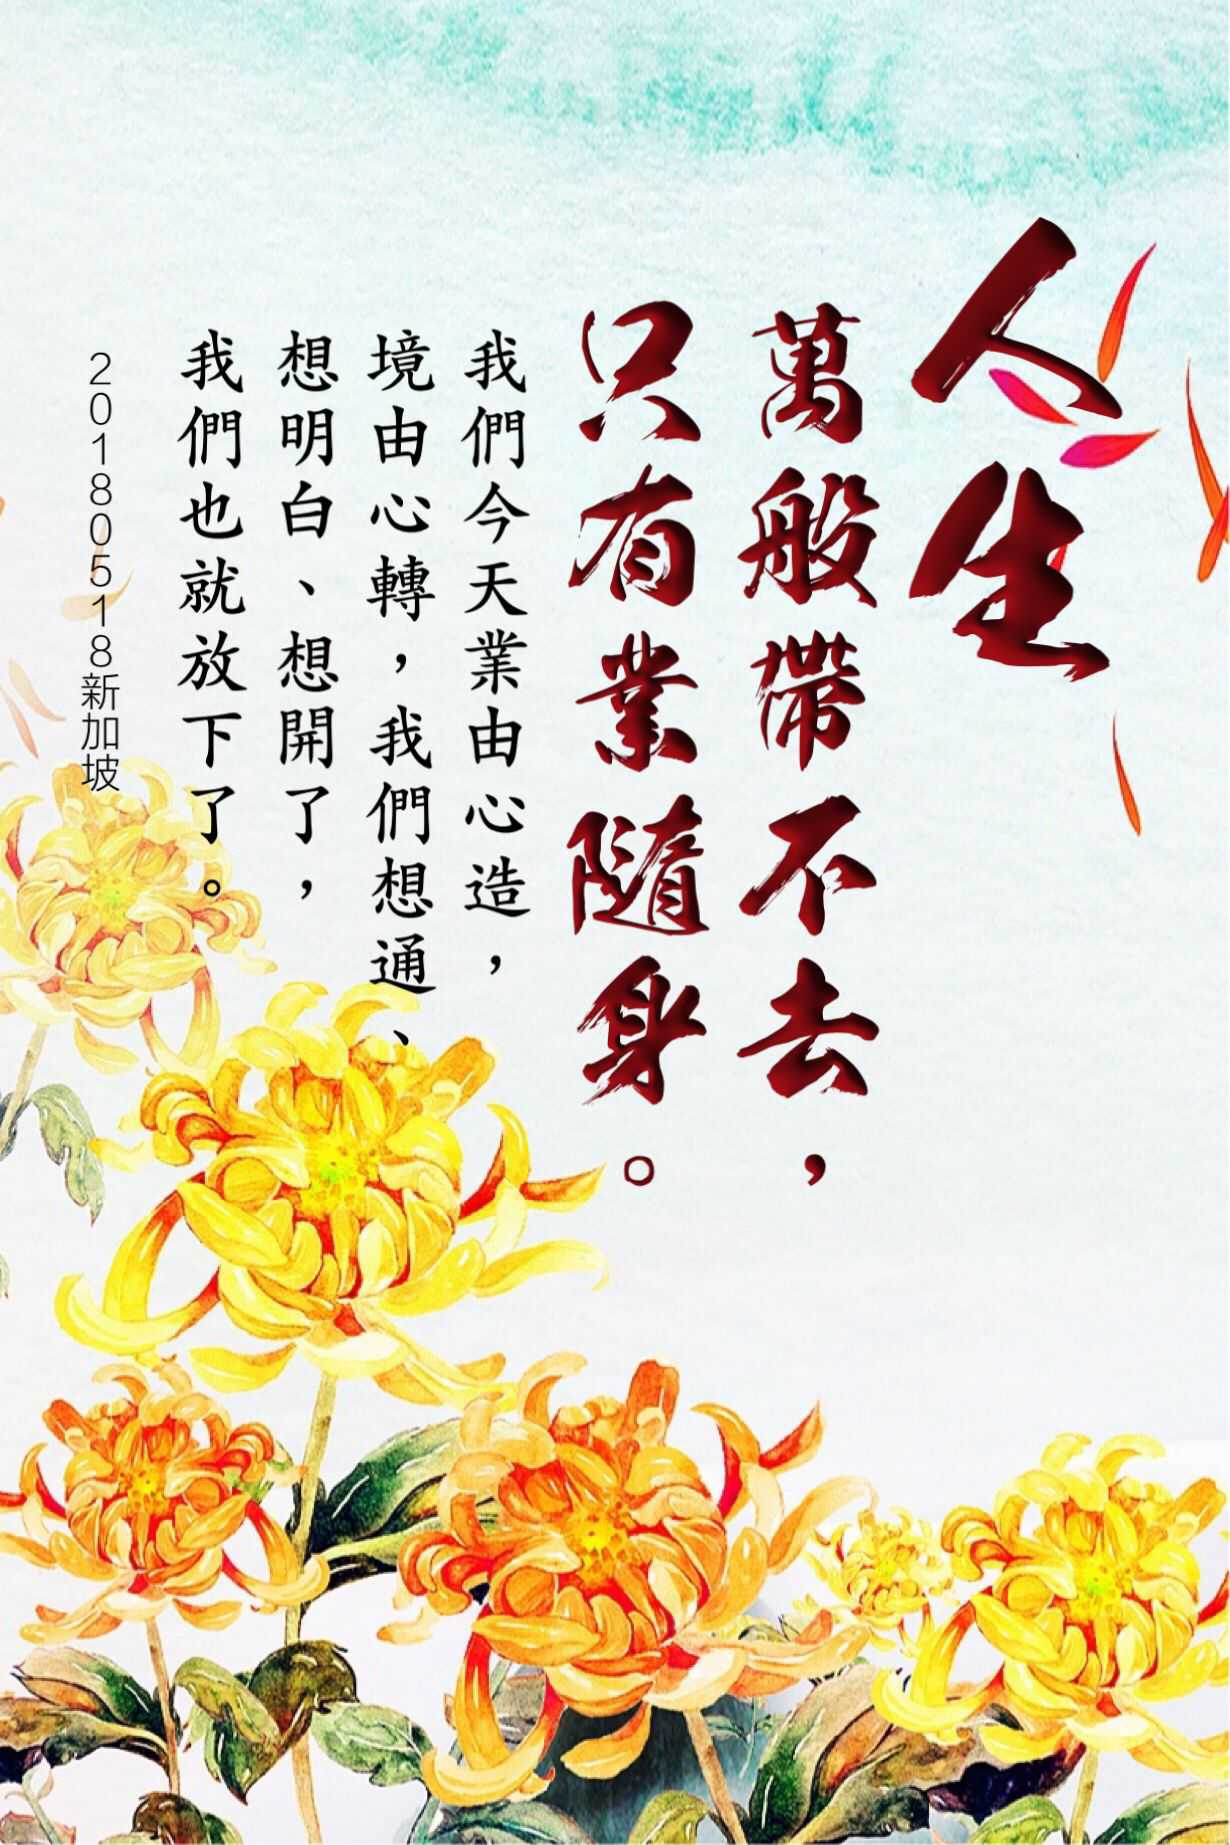 人生
萬般帶不去，
只有業隨身。
我們今天業由心造，
境由心轉，我們想通、
想明白、想開了，
我們也就放下了。
20180518新加坡